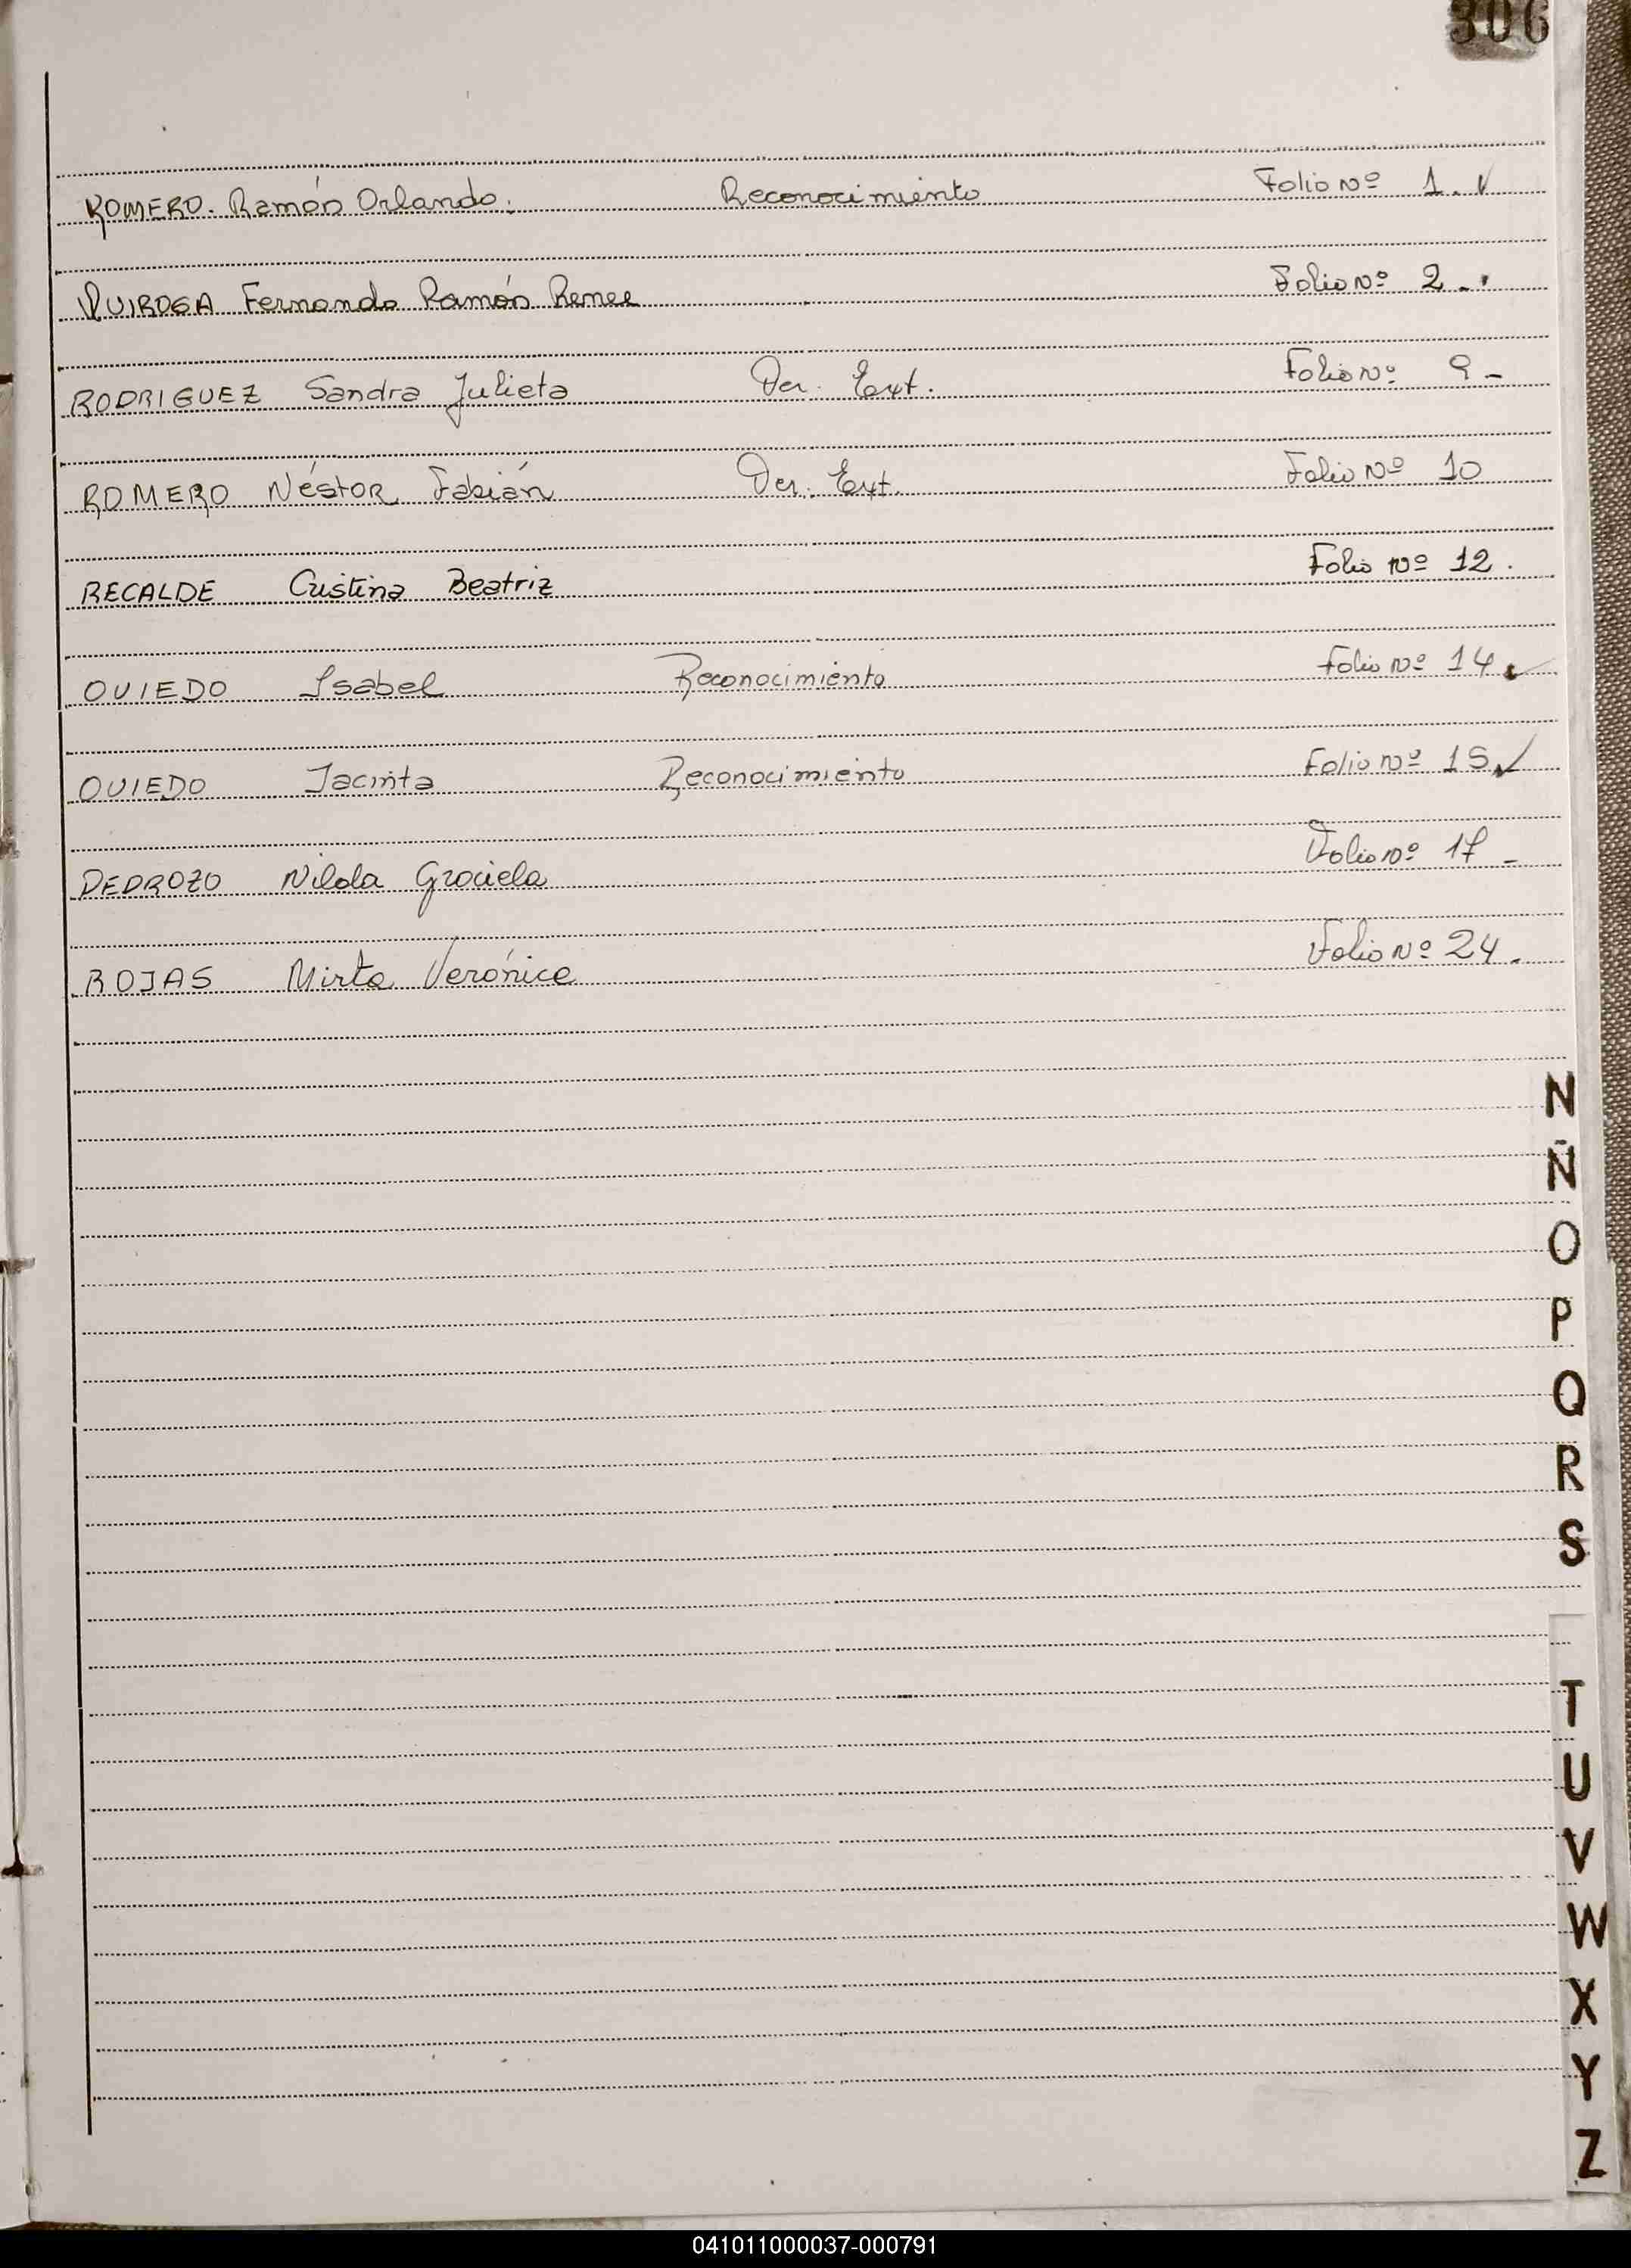 306
ROMERO. Ramón Orlando. Reconocimiento Folio Nº 1.
QUIROGA Fernando Ramón Renee Folio Nº 2.
RODRIGUEZ Sandra Julieta Der. Ext. Folio Nº 9-
ROMERO Néstor Fabián Der. Ext. Folio Nº 10
RECALDE Cristina Beatriz Folio Nº 12.
OVIEDO Isabel Reconocimiento Folio Nº 14
OVIEDO Jacinta Reconocimiento Folio Nº 15
PEDROZO Nilda Graciela Folio Nº 17-
ROJAS Mirta Verónica Folio Nº 24.
N
Ñ
O
P
Q
R
S
T
U
V
W
X
Y
Z
041011000037-000791